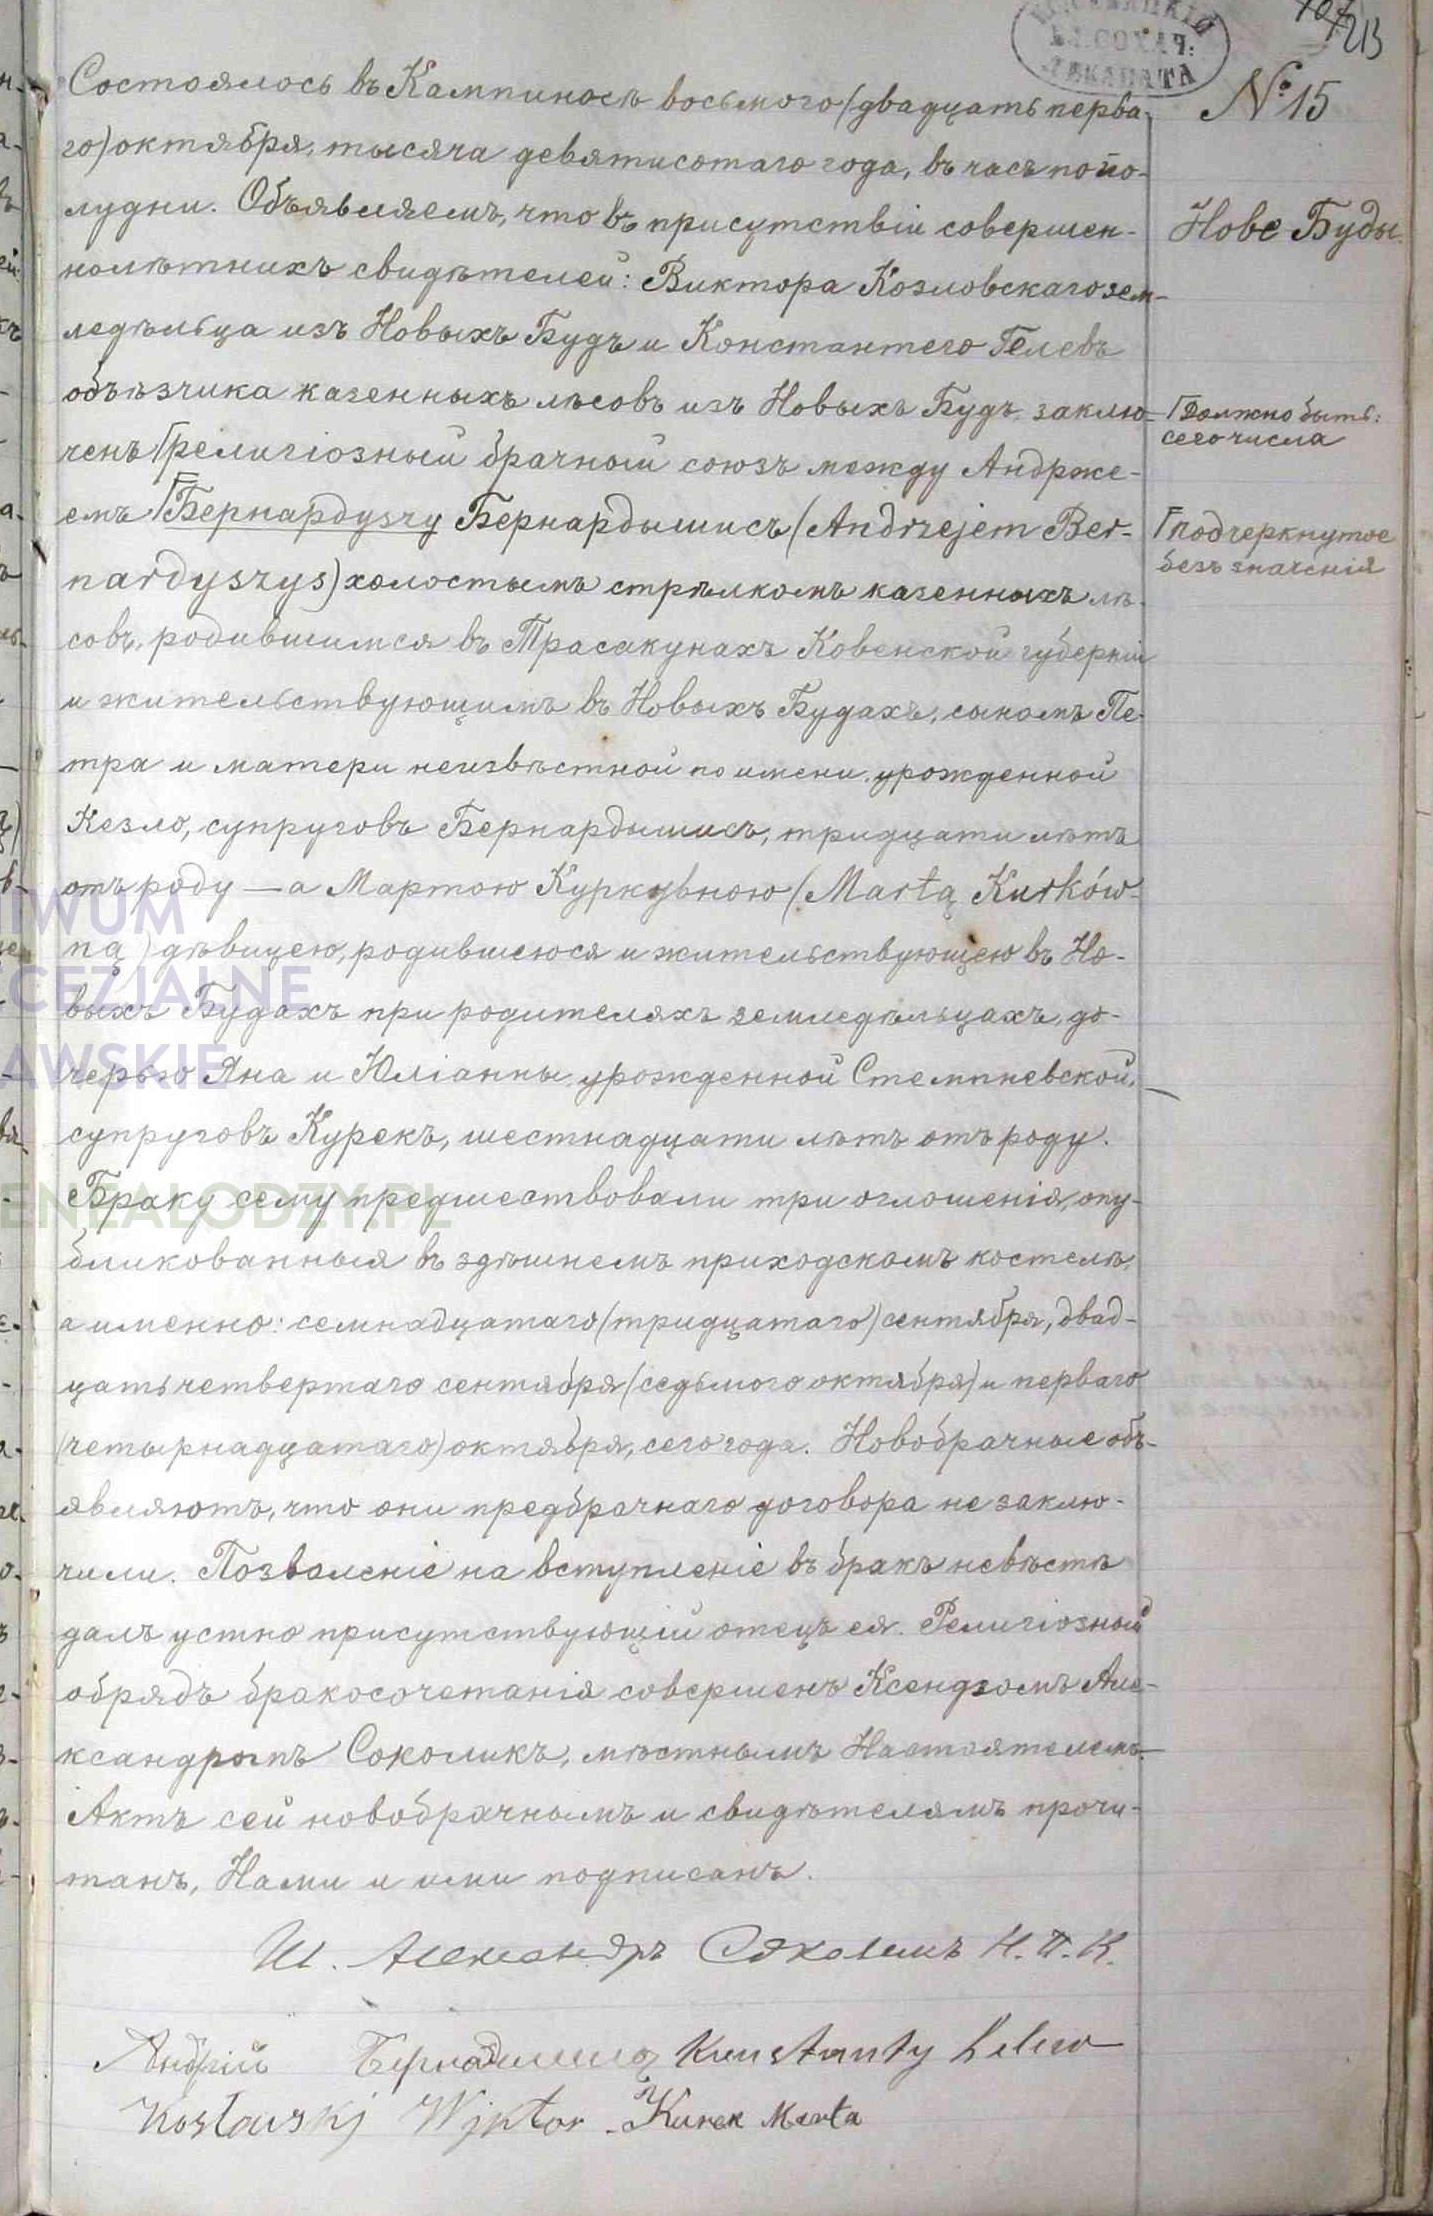 № 15
Нове Буды.
Состоялось въ Кампиносѣ восьмого (двадцать перва-
го) октября, тысяча девятисотаго года, въ часъ попо-
лудни. Объявляемъ, что въ присутствіи совершен-
нолѣтнихъ свидѣтелей: Виктора Козловскаго зем-
ледѣльца изъ Новыхъ Будъ и Константего Гелевъ
объѣзчика казенныхъ лѣсовъ изъ Новыхъ Будъ, заклю-
ченъ Г религіозный брачный союзъ между Андрже-
Г Должно быть:
сего числа
емъ Г Бернардуszy Бернардышисъ (Andrzejem Ber-
Г подчеркнутое
безъ значенія
nardyszys) холостымъ стрѣлкомъ казенныхъ лѣ-
совъ, родившимся въ Трасакунахъ Ковенской губерніи
и жительствующимъ въ Новыхъ Будахъ, сыномъ Пе-
тра и матери неизвѣстной по имени, урожденной
Кезло, супруговъ Бернардышисъ, тридцати лѣтъ
отъ роду — а Мартою Куркувною (Martą Kurków-
ną) дѣвицею, родившеюся и жительствующею въ Но-
выхъ Будахъ при родителяхъ земледѣльцахъ, до-
черью Яна и Юліанны, урожденной Стемпневской,
супруговъ Курекъ, шестнадцати лѣтъ отъ роду.
Браку сему предшествовали три оглошенія, опу-
бликованныя въ здѣшнемъ приходскомъ костелѣ,
а именно: семнадцатаго (тридцатаго) сентября, двад-
цать четвертаго сентября (седьмого октября) и перваго
(четырнадцатаго) октября, сего года. Новобрачные объ-
являютъ, что они предбрачнаго договора не заклю-
чили. Позволеніе на вступленіе въ бракъ невѣстѣ
далъ устно присутствующій отецъ ея. Религіозный
обрядъ бракосочетанія совершенъ Ксендзомъ Але-
ксандромъ Соколикъ, мѣстнымъ Настоятелемъ.
Актъ сей новобрачнымъ и свидѣтелямъ прочи-
танъ, Нами и ими подписанъ.
Александръ Соколикъ Н. П. К.
Андрій Бернадишисъ Konstanty Lelew
Kozlowski Wiktor Kurek Marta
ENEALODZY.PL